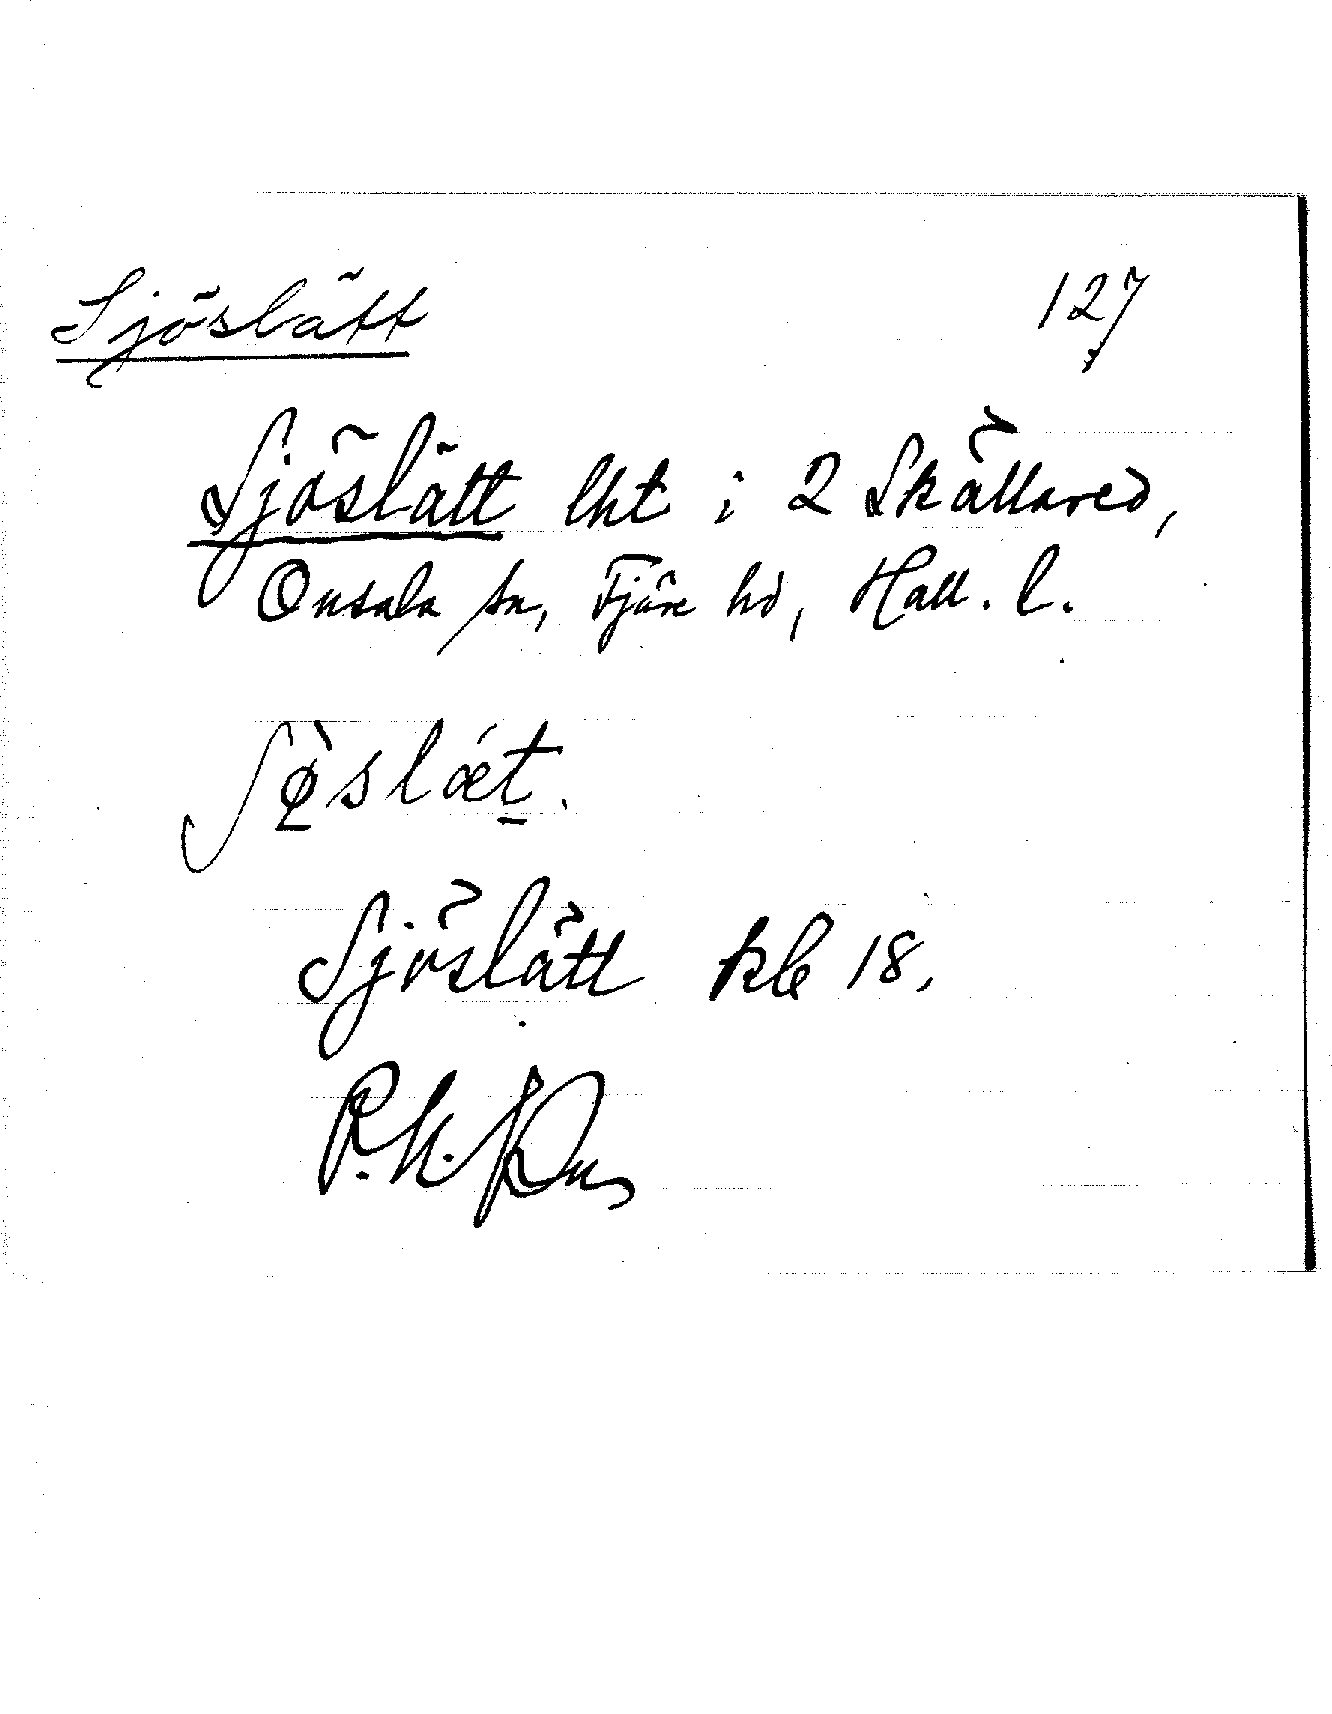 Sjöslätt 127
Sjöslätt lht i 2 Skällared,
Onsala sn, Fjäre hd, Hall. l.
ʃø̱̀slǽt̲.
Sjöslätt kb 18,
P. N.